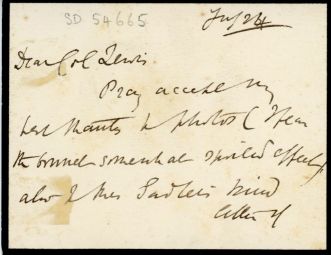 SD 54665
July 24
Dear Col Lewis
Pray accept my
best thanks photos (I fear
the bonnet somewhat spoiled effect)
also Mrs Sadleir's kind